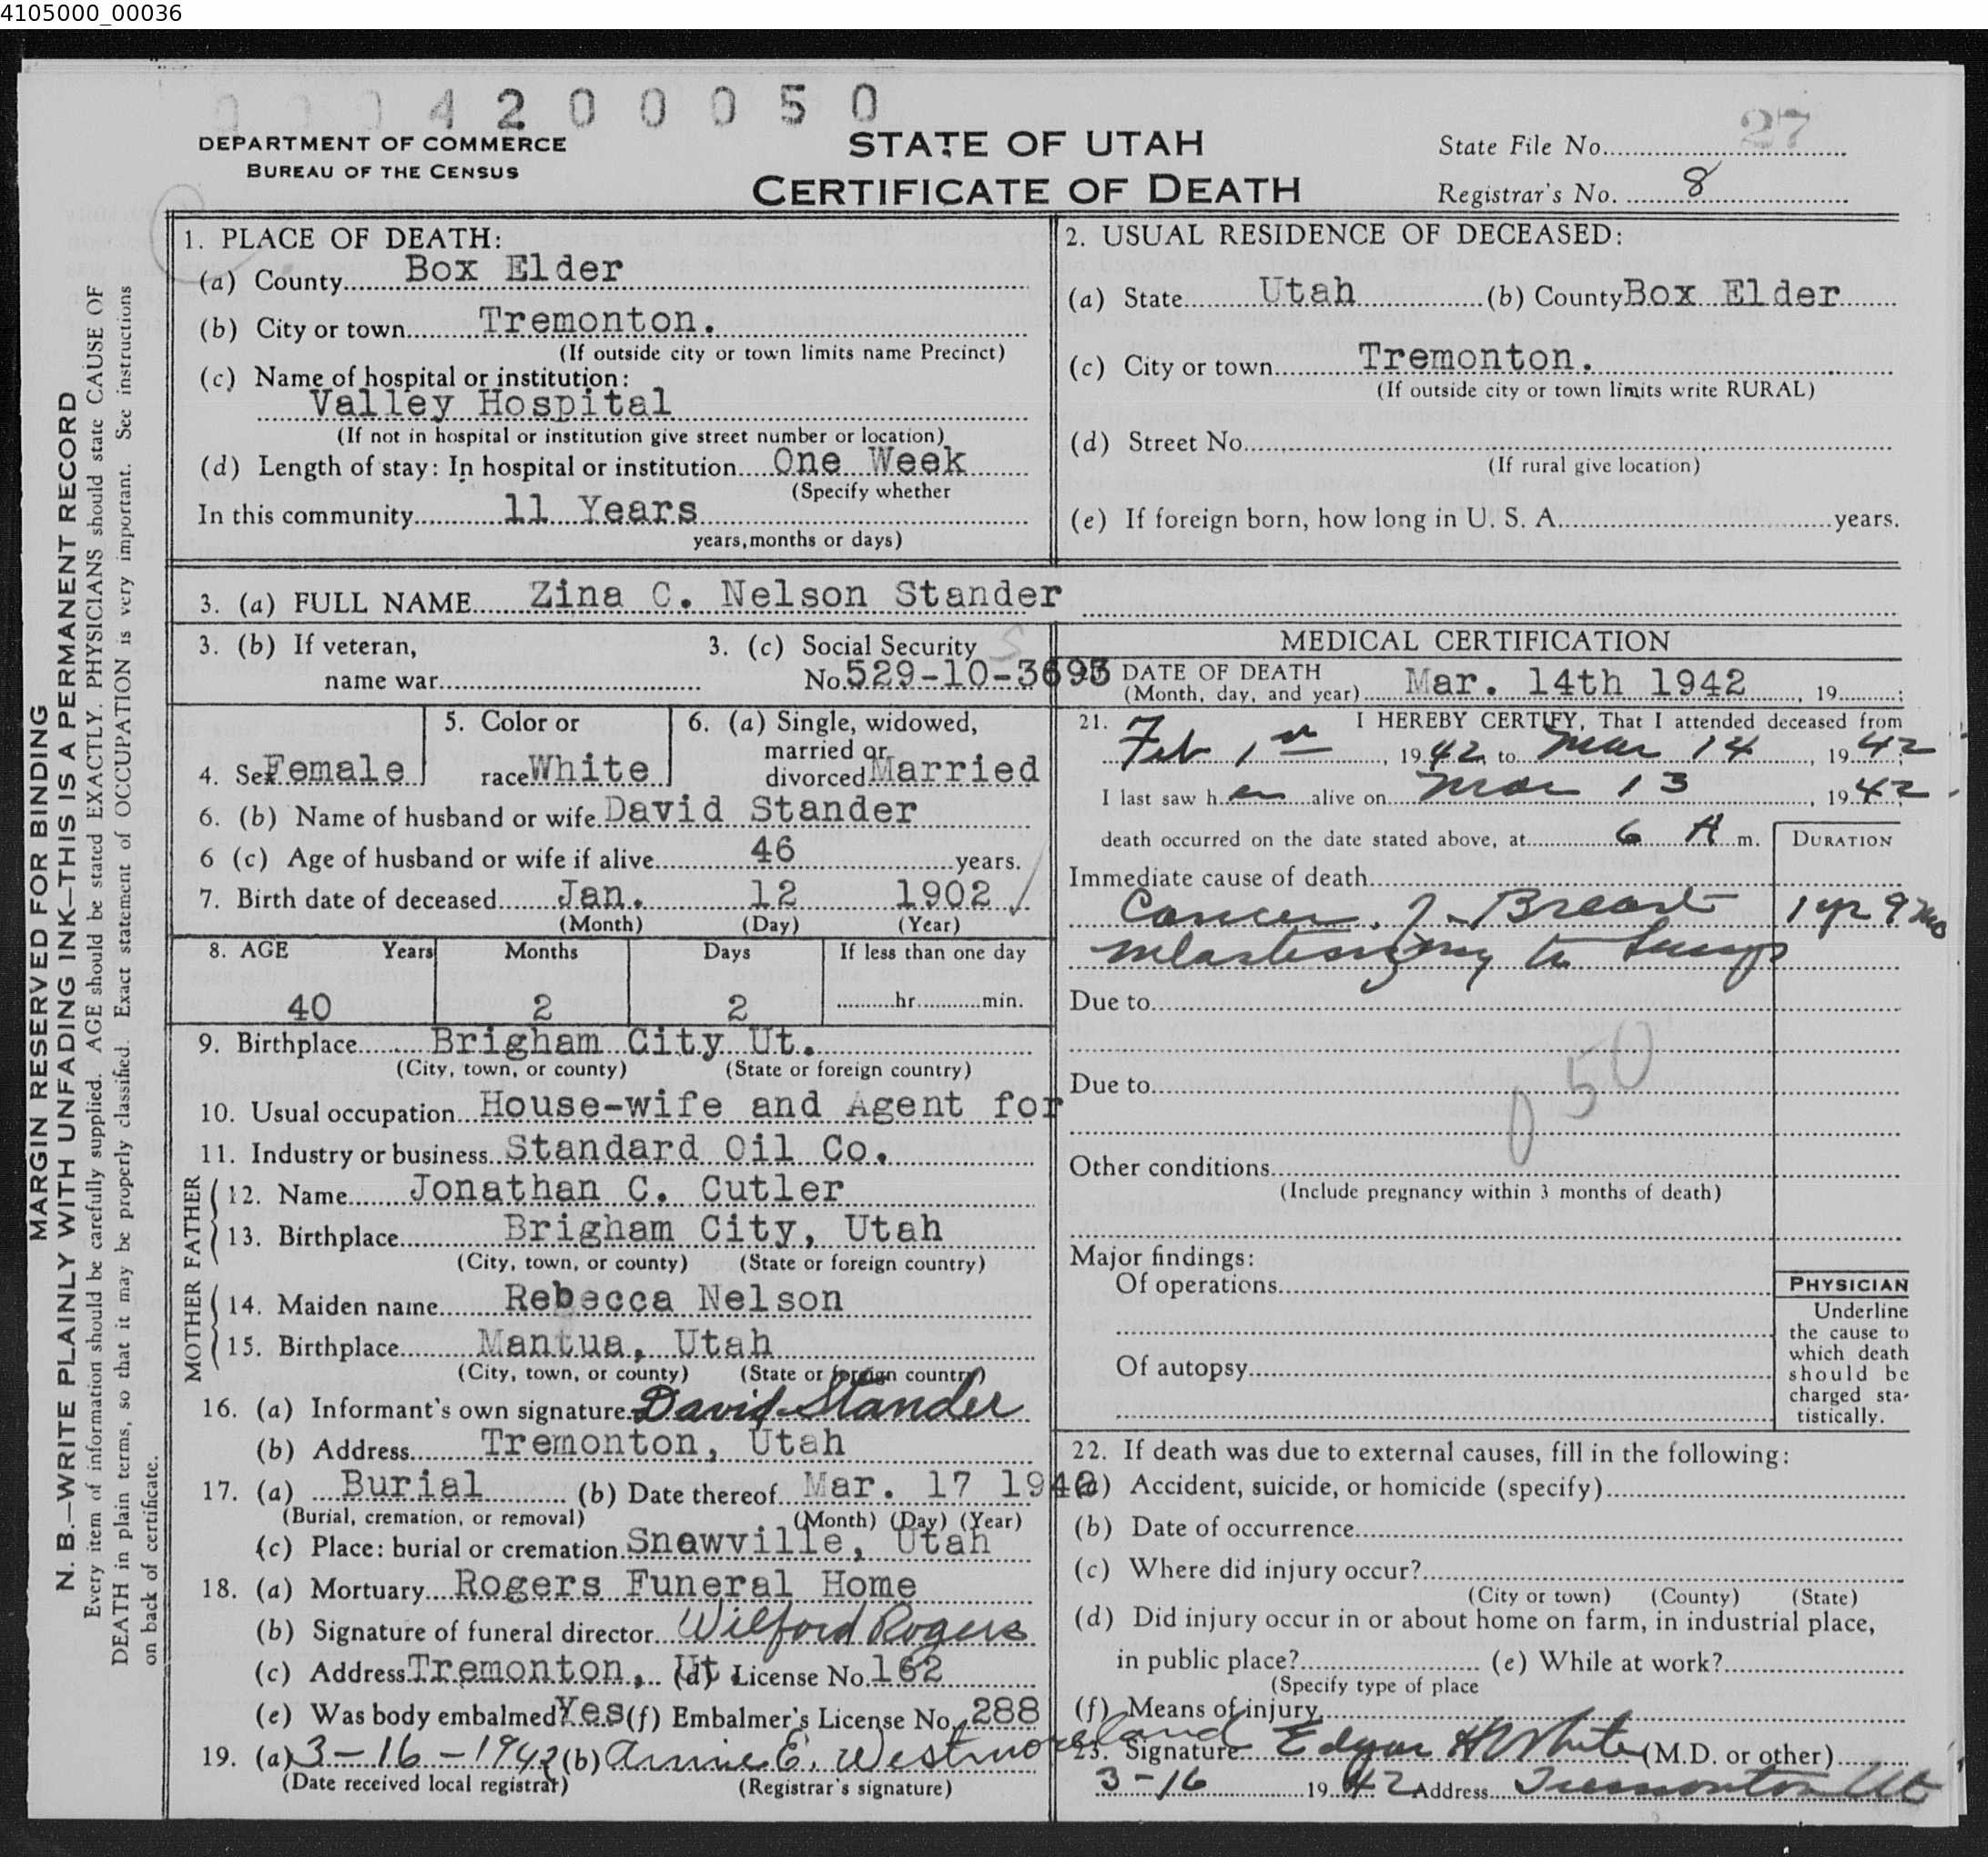 4105000_00036
0 0 0 4 2 0 0 0 5 0
27
DEPARTMENT OF COMMERCE
BUREAU OF THE CENSUS
STATE OF UTAH
CERTIFICATE OF DEATH
State File No.
Registrar's No. 8
MARGIN RESERVED FOR BINDING
N. B.—WRITE PLAINLY WITH UNFADING INK—THIS IS A PERMANENT RECORD
Every item of information should be carefully supplied. AGE should be stated EXACTLY. PHYSICIANS should state CAUSE OF
DEATH in plain terms, so that it may be properly classified. Exact statement of OCCUPATION is very important. See instructions
on back of certificate.
1. PLACE OF DEATH:
(a) County Box Elder
(b) City or town Tremonton.
(If outside city or town limits name Precinct)
(c) Name of hospital or institution:
Valley Hospital
(If not in hospital or institution give street number or location)
(d) Length of stay: In hospital or institution One Week
(Specify whether
In this community 11 Years
years, months or days)
2. USUAL RESIDENCE OF DECEASED:
(a) State Utah (b) County Box Elder
(c) City or town Tremonton.
(If outside city or town limits write RURAL)
(d) Street No.
(If rural give location)
(e) If foreign born, how long in U. S. A. years.
3. (a) FULL NAME Zina C. Nelson Stander
3. (b) If veteran,
name war
3. (c) Social Security
No. 529-10-3693
4. Sex Female
5. Color or
race White
6. (a) Single, widowed,
married or
divorced Married
6. (b) Name of husband or wife David Stander
6 (c) Age of husband or wife if alive 46 years.
7. Birth date of deceased Jan. 12 1902
(Month) (Day) (Year)
8. AGE Years Months Days If less than one day
40 2 2 hr. min.
9. Birthplace Brigham City Ut.
(City, town, or county) (State or foreign country)
10. Usual occupation House-wife and Agent for
11. Industry or business Standard Oil Co.
FATHER
12. Name Jonathan C. Cutler
13. Birthplace Brigham City, Utah
(City, town, or county) (State or foreign country)
MOTHER
14. Maiden name Rebecca Nelson
15. Birthplace Mantua, Utah
(City, town, or county) (State or foreign country)
16. (a) Informant's own signature David Stander
(b) Address Tremonton, Utah
17. (a) Burial (b) Date thereof Mar. 17 1942
(Burial, cremation, or removal) (Month) (Day) (Year)
(c) Place: burial or cremation Snowville, Utah
18. (a) Mortuary Rogers Funeral Home
(b) Signature of funeral director Wilford Rogers
(c) Address Tremonton, Ut (d) License No. 162
(e) Was body embalmed Yes (f) Embalmer's License No. 288
19. (a) 3-16-1942 (b) Annie E. Westmoreland
(Date received local registrar) (Registrar's signature)
MEDICAL CERTIFICATION
DATE OF DEATH
(Month, day, and year) Mar. 14th 1942, 19 ;
21. I HEREBY CERTIFY, That I attended deceased from
Feb 1st, 1942, to Mar 14, 1942;
I last saw her alive on Mar 13, 1942;
death occurred on the date stated above, at 6 A m.
DURATION
Immediate cause of death
Cancer of Breast 1 yr 9 mo
to Lungs
Due to
050
Due to
Other conditions
(Include pregnancy within 3 months of death)
Major findings:
Of operations
Of autopsy
PHYSICIAN
Underline
the cause to
which death
should be
charged sta-
tistically.
22. If death was due to external causes, fill in the following:
(a) Accident, suicide, or homicide (specify)
(b) Date of occurrence
(c) Where did injury occur?
(City or town) (County) (State)
(d) Did injury occur in or about home on farm, in industrial place,
in public place? (e) While at work?
(Specify type of place
(f) Means of injury
23. Signature Edgar H White (M.D. or other)
3-16 1942 Address Tremonton Ut